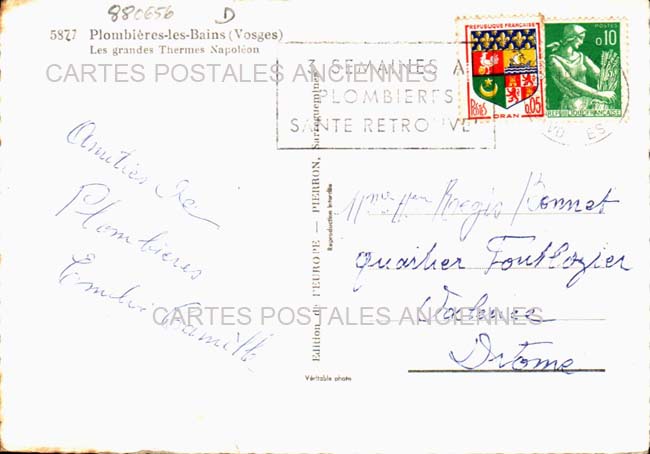 880656 D
5877 Plombières-les-Bains (Vosges)
Les grandes Thermes Napoléon
CARTES POSTALES ANCIENNES
3 SEMAINES A
PLOMBIERES
SANTE RETROUVE
REPUBLIQUE FRANÇAISE
Postes 0,05
ORAN
POSTES
0,10
REPUBLIQUE FRANÇAISE
ES
Amitiés de
Plombières
Emilie
Edition d' l'EUROPE — PIERRON, Sarreguemines
Reproduction interdite
Véritable photo
Régis Bonnet
Quartier Fontlozier
Valence
Drôme
CARTES POSTALES ANCIENNES